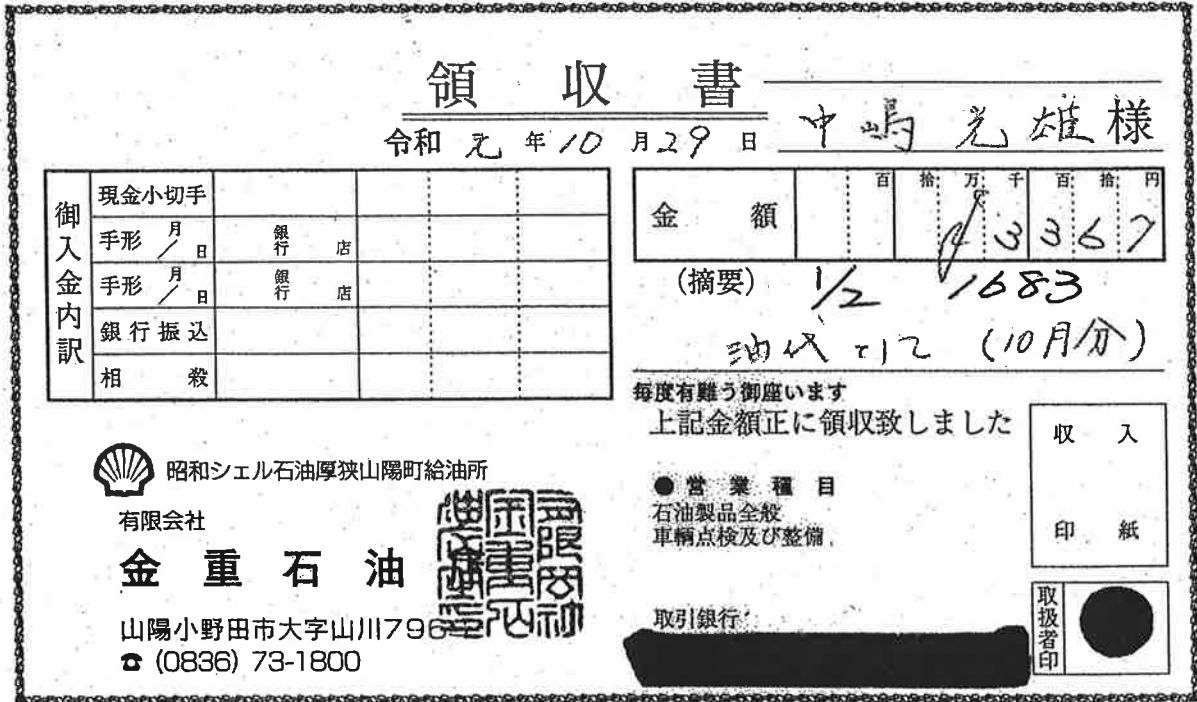 領収書
中嶋光雄様
令和元年10月29日
御入金内訳
現金小切手
手形 月/日 銀行 店
手形 月/日 銀行 店
銀行振込
相殺
金額 百拾万千百拾円
¥3367
(摘要) 1/2 1683
油代として (10月分)
毎度有難う御座います
上記金額正に領収致しました
収入
印紙
●営業種目
石油製品全般
車輌点検及び整備
取引銀行
取扱者印
昭和シェル石油厚狭山陽町給油所
有限会社
金重石油
山陽小野田市大字山川796
☎(0836) 73-1800